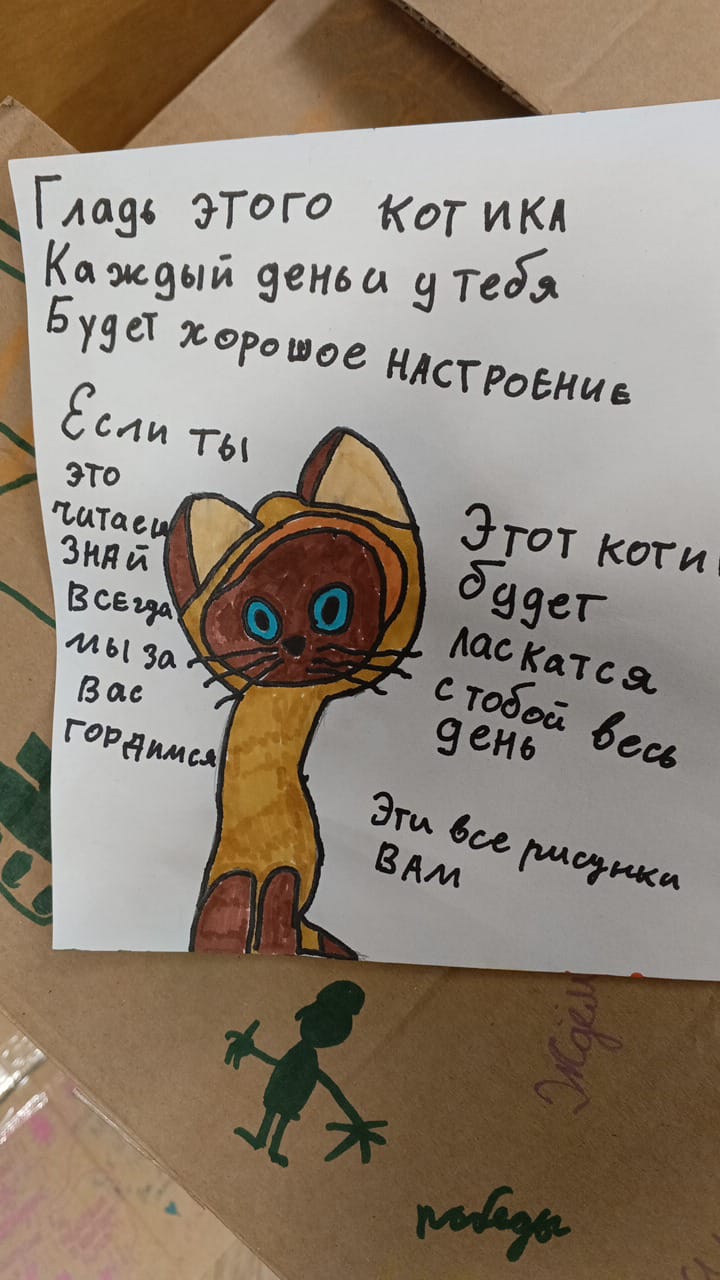 Гладь этого котика
Каждый день и у тебя
Будет хорошое настроение
Если ты
это
читаеш
знай
всегда
мы за
вас
гордимся
Этот коти
будет
ласкатся
с тобой весь
день
Эти все рисунки
вам
Ждём
победы